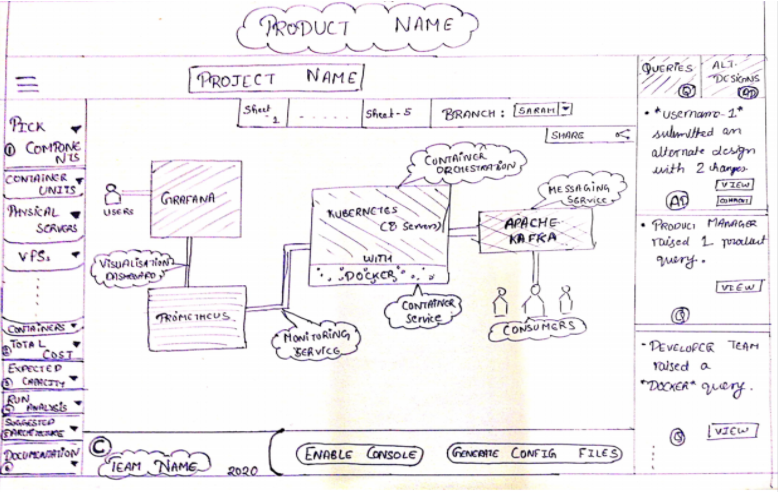 PRODUCT NAME
PROJECT NAME
QUERIES
Q
ALT.
DESIGNS
AD
Sheet
1
......
Sheet-5
BRANCH: SARAH
SHARE
PICK
1 COMPONE
NTS
CONTAINER
UNITS
PHYSICAL
SERVERS
VPS.
CONTAINERS
2 TOTAL
COST
EXPECTED
3 CAPACITY
RUN
4 ANALYSIS
SUGGESTED
5 ARCHITECTURE
DOCUMENTATION
6
USERS
GRAFANA
VISUALISATION
DASHBOARD
PROMETHEUS
MONITORING
SERVICE
CONTAINER
ORCHESTRATION
KUBERNETES
(8 Servers)
WITH
DOCKER
CONTAINER
Service
MESSAGING
SERVICE
APACHE
KAFKA
CONSUMERS
• "Username-1"
submitted an
alternate design
with 2 changes.
VIEW
COMMENT
AD
• PRODUCT MANAGER
raised 1 product
query.
VIEW
Q
- DEVELOPER TEAM
raised a
"DOCKER" query.
VIEW
Q
©
TEAM NAME 2020
ENABLE CONSOLE
GENERATE CONFIG FILES